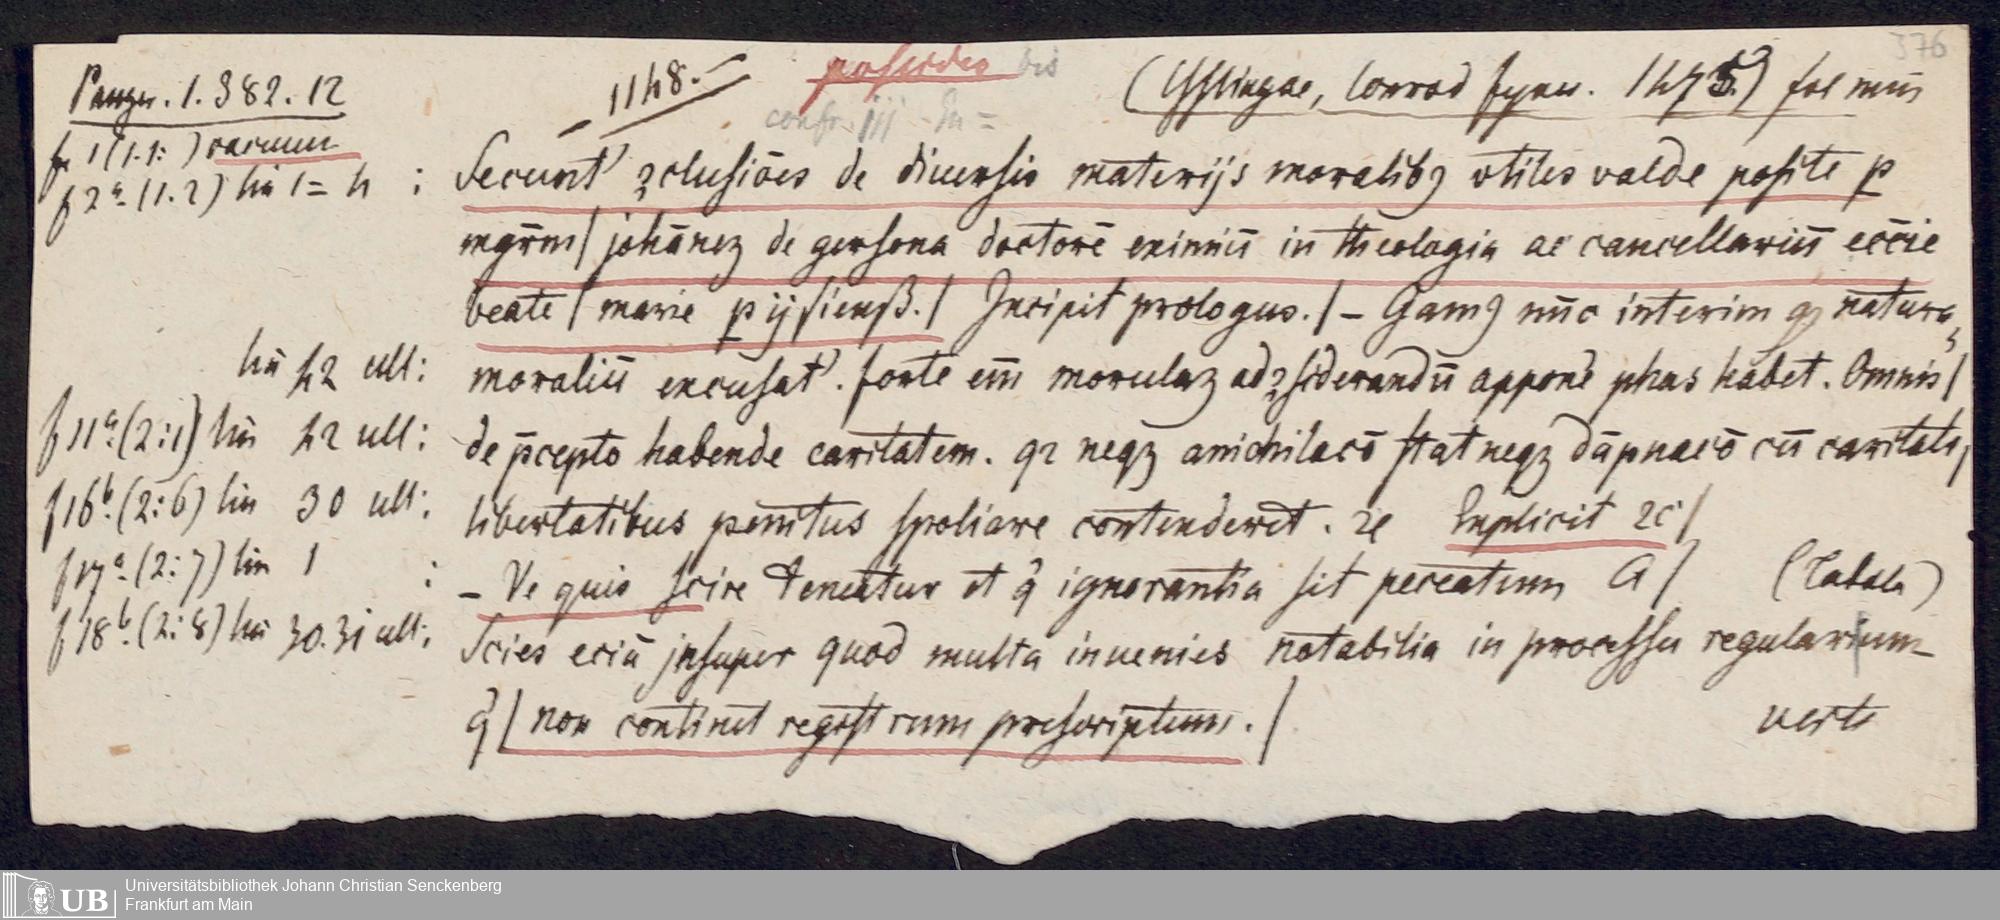 376
Panzer. 1. 382. 12
1148.
possides bis
(Esslingae, Conrad fyner. 1475.) fol min
confr. III
f 1 (1.1:) vacuum
f 2ª (1.2) lin 1=4 : Secunt' ꝯclusiōes de diuersis materijs moralibꝫ vtiles valde posite ꝑ
mgr̄m / johānez de gersona doctorē eximiū in theologia ac cancellariū ecc̄ie
beate / marie ꝑijsienß. / Incipit prologus. / – Gamꝫ nūc interim natura
lin 42 ult: moraliū excusat'. forte em̄ morulaz adꝯsiderandū apponē phas habet. Omnis /
f 11ª (2:1) lin 42 ult: de p̄cepto habende caritatem. qꝛ neqꝫ anichilacō stat neqꝫ dāpnacō cū caritate,
f 16ᵇ. (2:6) lin 30 ult: libertatibus penitus spoliare contenderet. ⁊c Explicit ⁊c /
f 17ª. (2:7) lin 1 : – Ve quis scire teneatur et q̄ ignorantia sit peccatum A / (Tabula)
f 18ᵇ. (2:8) lin 30.31 ult: Scies eciā jnsuper quod multa inuenies notabilia in processu regularum
q̄ / non continet registrum prescriptum. / verte
UB
Universitätsbibliothek Johann Christian Senckenberg
Frankfurt am Main